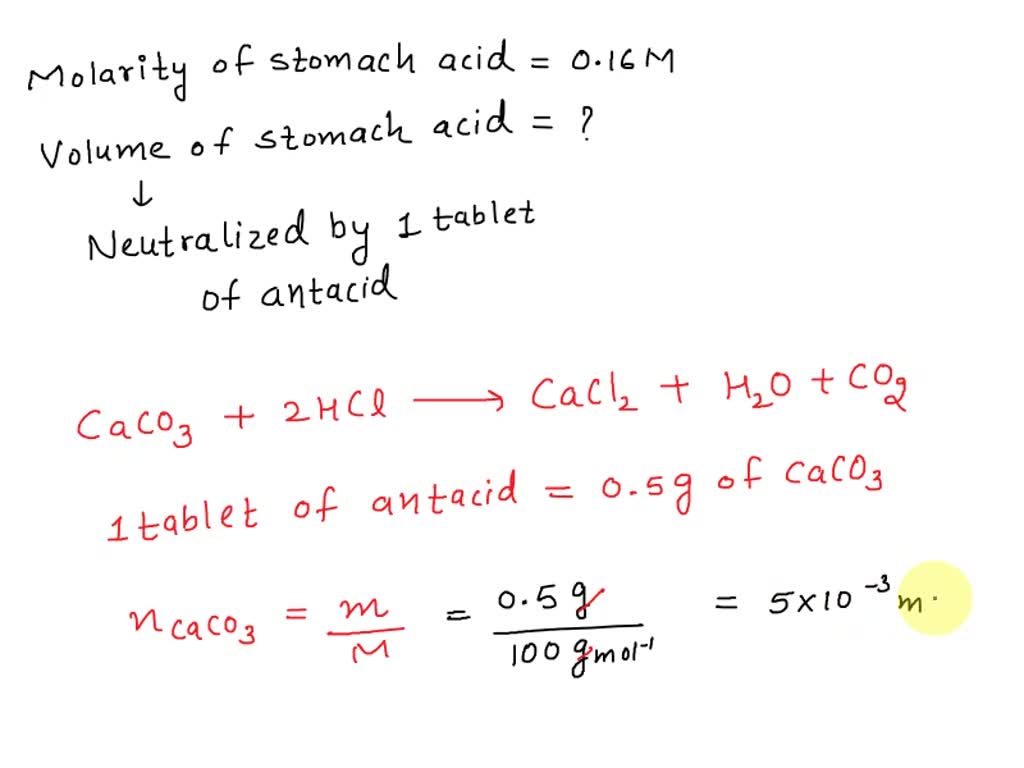 Molarity of stomach acid = 0.16M
Volume of stomach acid = ?
↓
Neutralized by 1 tablet
of antacid
CaCO₃ + 2HCl ⟶ CaCl₂ + H₂O + CO₂
1 tablet of antacid = 0.5g of CaCO₃
n CaCO₃ = m/M = 0.5 g / 100 g mol⁻¹ = 5×10⁻³ m